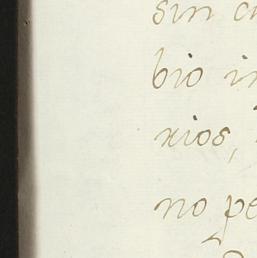 sin
bio
xios,
no pe